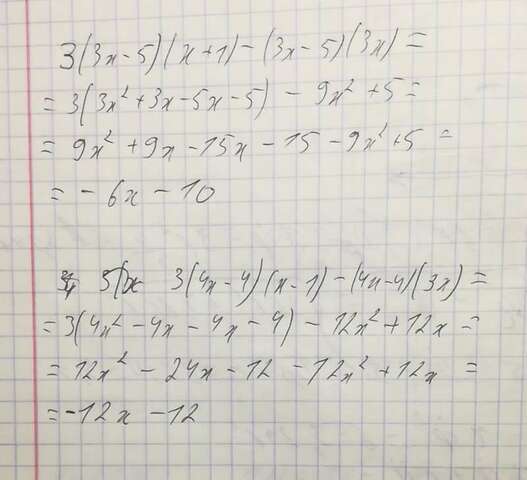 3(3x-5)(x+1)-(3x-5)(3x)=
=3(3x²+3x-5x-5) - 9x²+5=
= 9x²+9x-15x-15-9x²+5 =
= -6x-10
3(4x-4)(x-1)-(4x-4)(3x)=
=3(4x²-4x-4x-4)-12x²+12x =
= 12x²-24x-12-12x²+12x =
=-12x-12